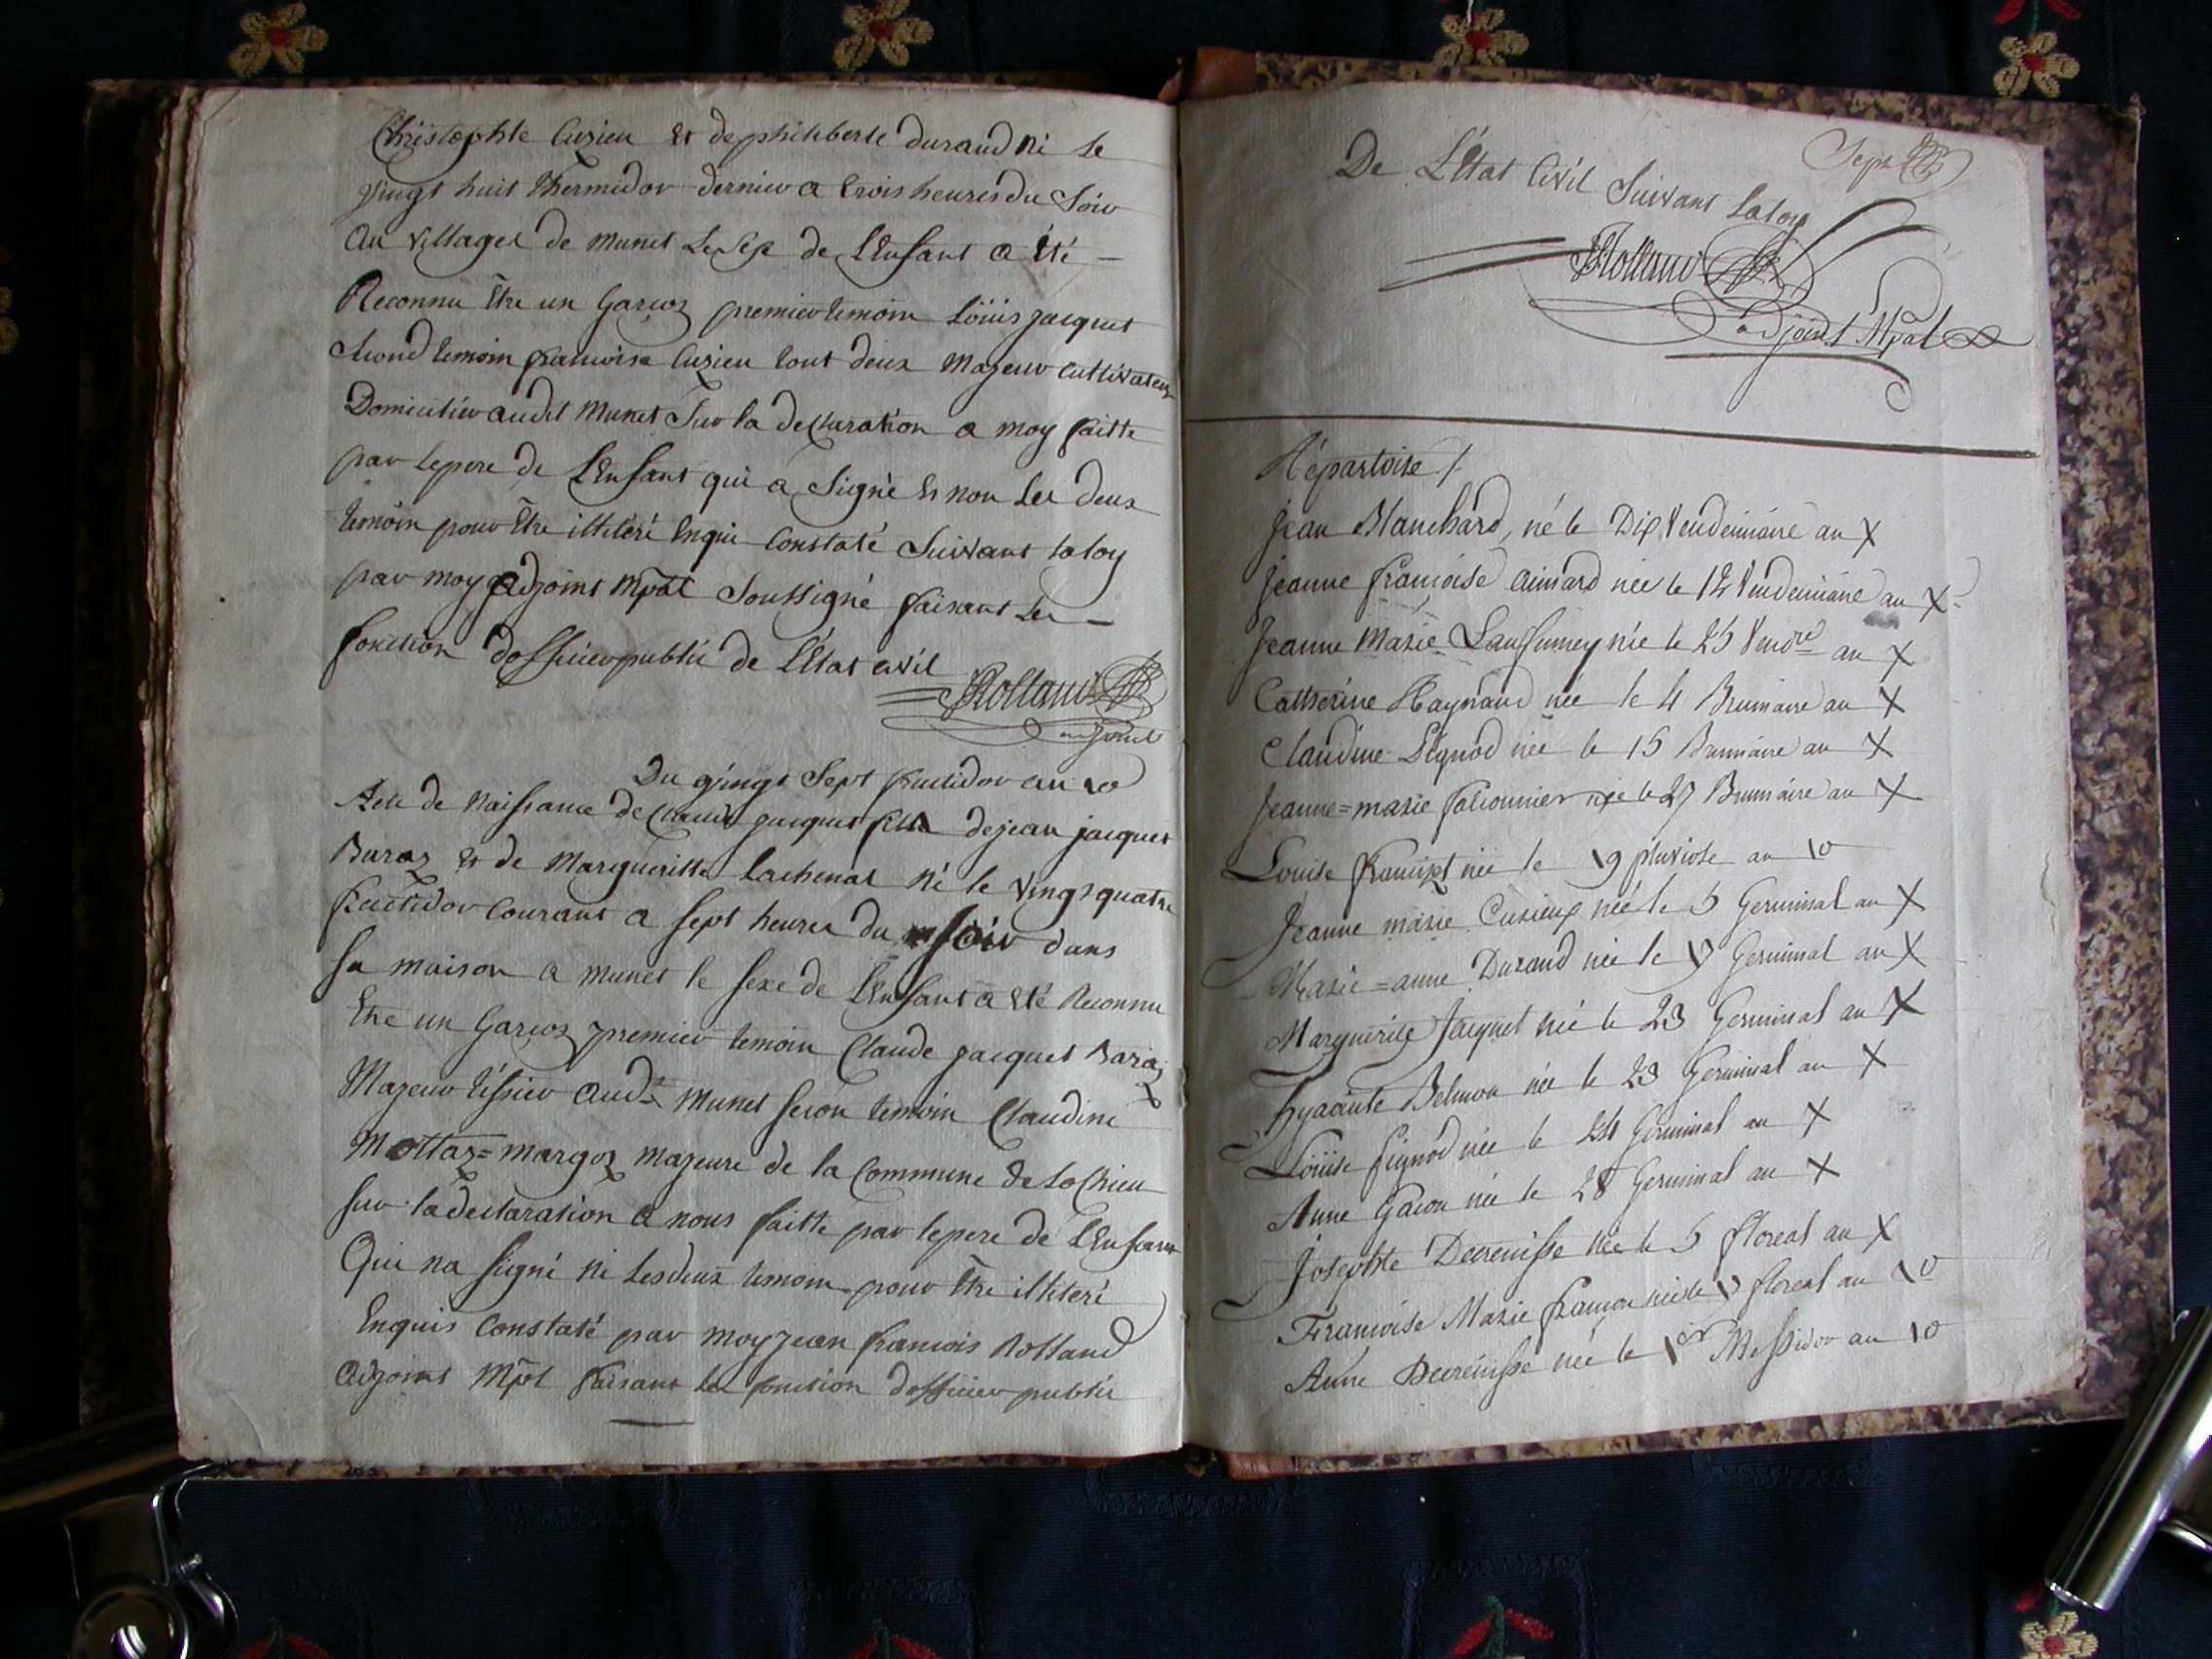 Christophle Cuzieu et de philiberte durand né le
Vingt huit thermidor dernier a trois heures du Soir
Au Villages de munet Le Sexe de L'Enfant a Eté
Reconnu Etre un Garçoz premier temoin Loüis jacquet
Second temoin francoise Cuzieu tout deux Majeur Cultivateur
Domicilier audit Munet Sur la declaration a moy faitte
par le pere de L'Enfant qui a Signé Et non Les deux
temoin pour Etre illiteré Enqui Constaté Suivant la loy
par moy Adjoint Mpal Soussigné faisant Les
fonction dofficier public de L'Etat Civil
JRolland
adjoint
Du Vingt Sept fructidor an 10
Acte de Naissance de Claude jacquet fils de jean jacquet
Baraz et de Margueritte Lachenal né le Vingt quatre
fructidor Courant a Sept heures du Soir dans
sa maison a munet le sexe de L'Enfant a Eté Reconnu
Etre un Garçoz premier temoin Claude jacquet Baraz
Majeur tissier audt Munet Secon temoin Claudine
Mottaz=margoz majeure de la Commune de Lochieu
sur la declaration a nous faitte par le pere de L'Enfant
Qui na signé ni Les deux temoin pour Etre illiteré
Enquis Constaté par moy jean francois Rolland
adjoint Mpl faisant les fonction dofficier public
Sept
De L'Etat Civil Suivant la loy
JRolland
adjoint Mpal
Répartoire /.
Jean Blanchard, né le Dix Vendemiaire an X
Jeanne francoise aimard née le 12 Vendemiaire an X
Jeanne Marie née le 25 Vendre an X
Catherine Raynaud née le 4 Brumaire an X
Claudine Pignod née le 15 Brumaire an X
Jeanne=marie née le 27 Brumaire an X
Louise née le 19 pluviose an 10
Jeanne marie Cuzieux née le 5 Germinal an X
Marie=anne Durand née le Germinal an X
Marguerite Jacquet née le 23 Germinal an X
hyacinte Belmon née le 23 Germinal an X
Loüise pignod née le 24 Germinal an X
Anne Gacon née le 28 Germinal an X
Josephte Decrenisse née le 5 floreal an X
Francoise Marie née le floreal an 10
Anne Decrenisse née le 1er Messidor an 10